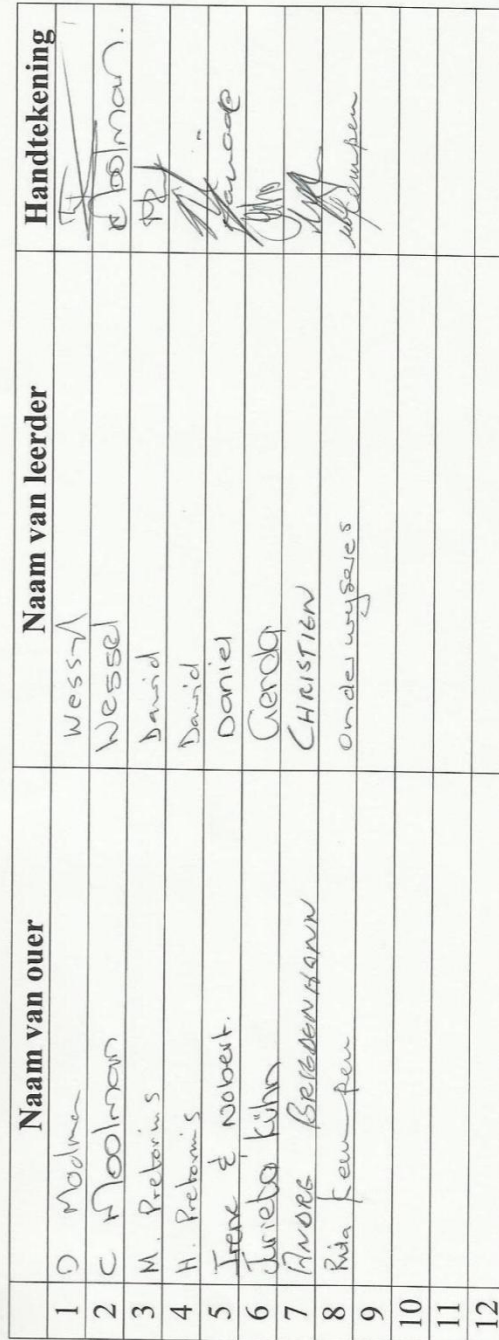 Naam van ouer Naam van leerder Handtekening
1 D Moolman Wessel
2 C Moolman Wessel Moolman.
3 M. Pretorius Dawid
4 H. Pretorius Dawid
5 Irene & Nobert. Daniel
6 Jurieta Kühn Gerda
7 ANDRE CHRISTIEN
8 Rita Kempen onderwyseres
9
10
11
12